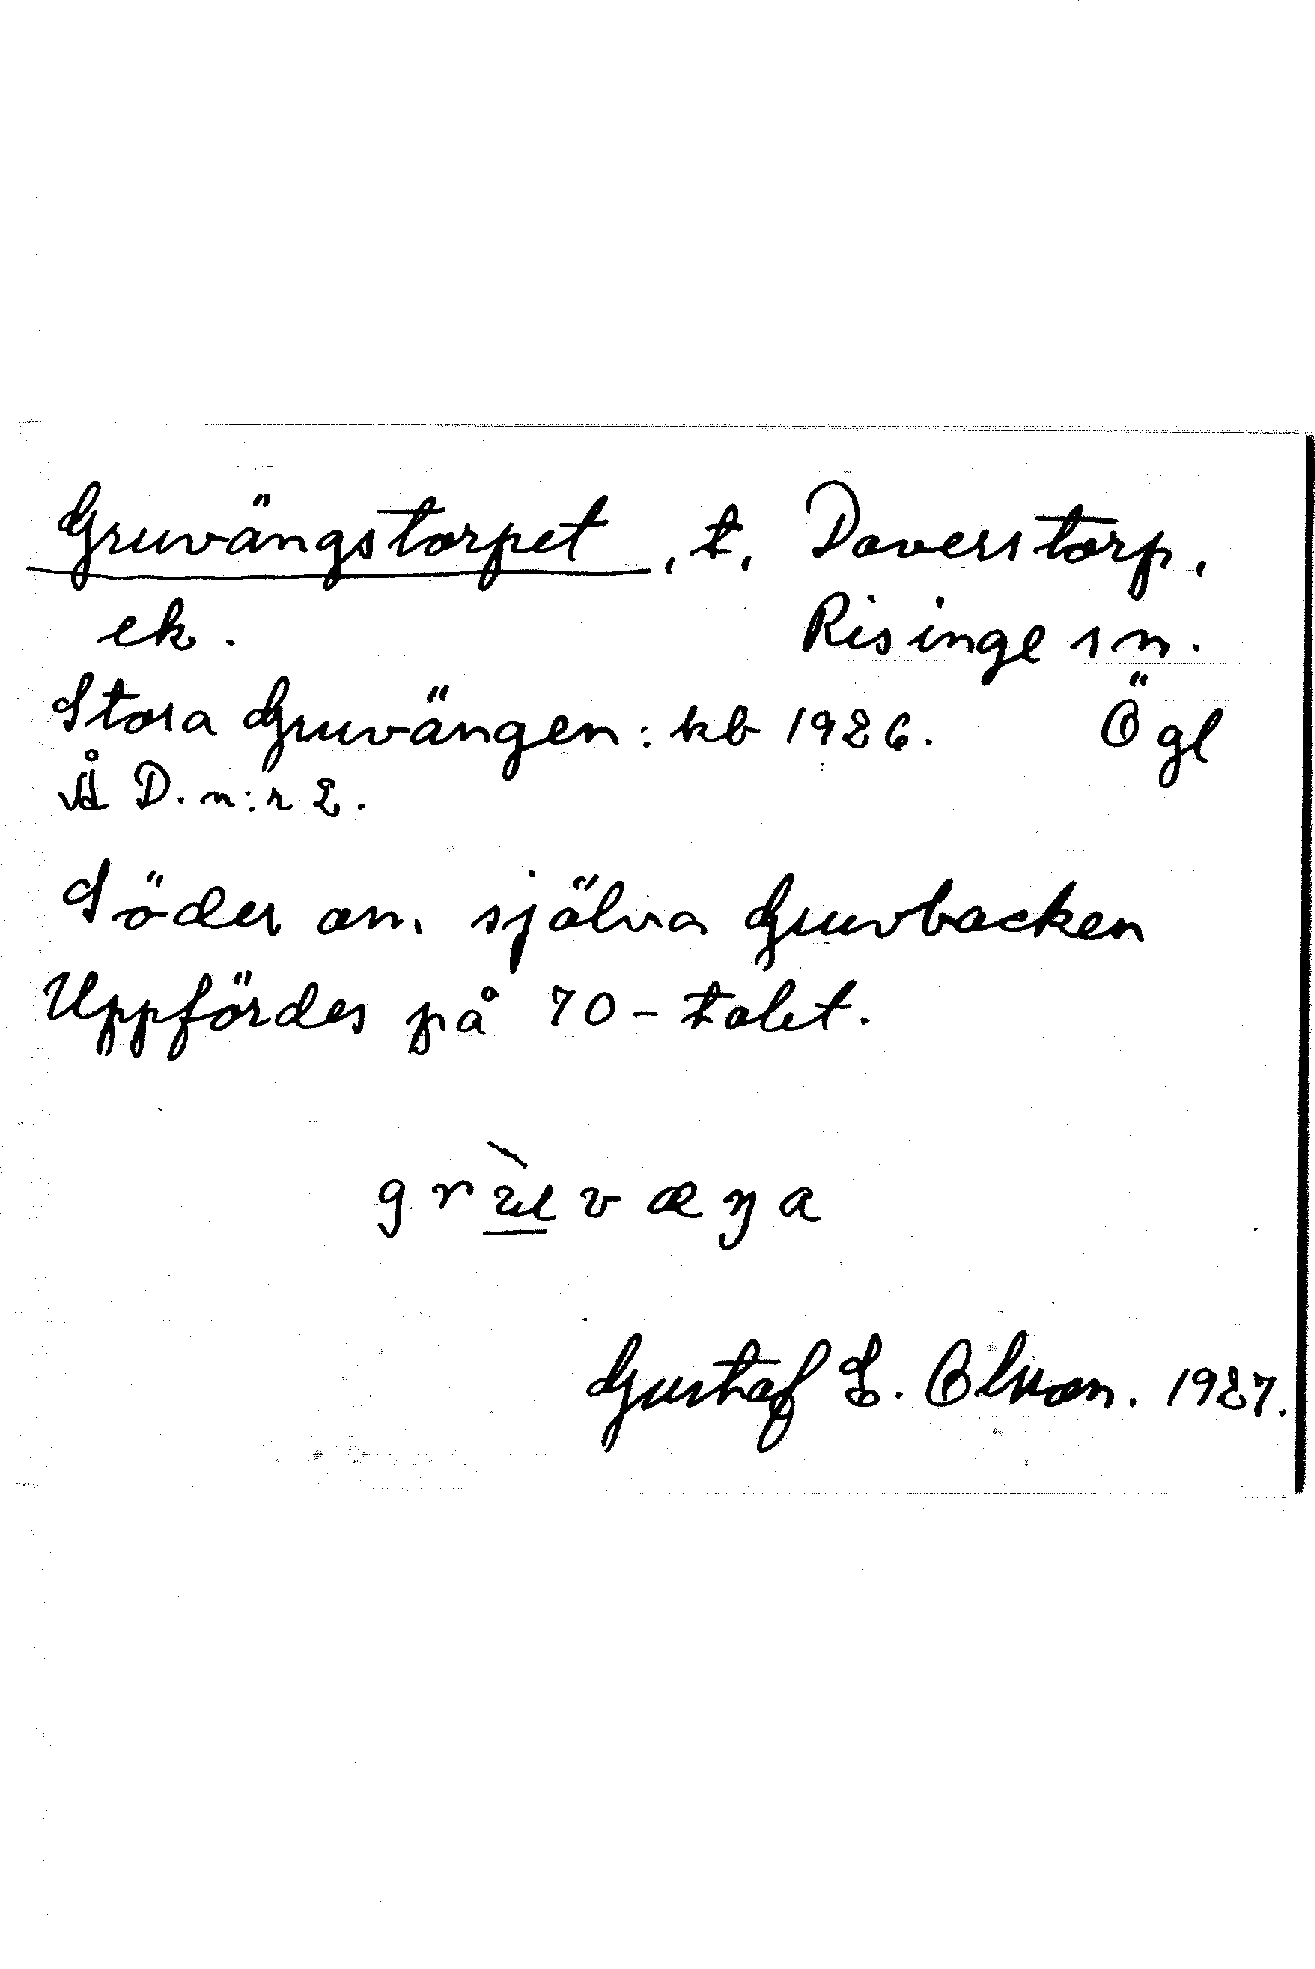 Gruvängstorpet, t. Daverstorp.
ek. Risinge sn.
Stora Gruvängen: kb 1926. Ögl
Å D. n:r 2.
Söder om själva Gruvbacken
Uppfördes på 70-talet.
Gustaf E. Olson. 1927.